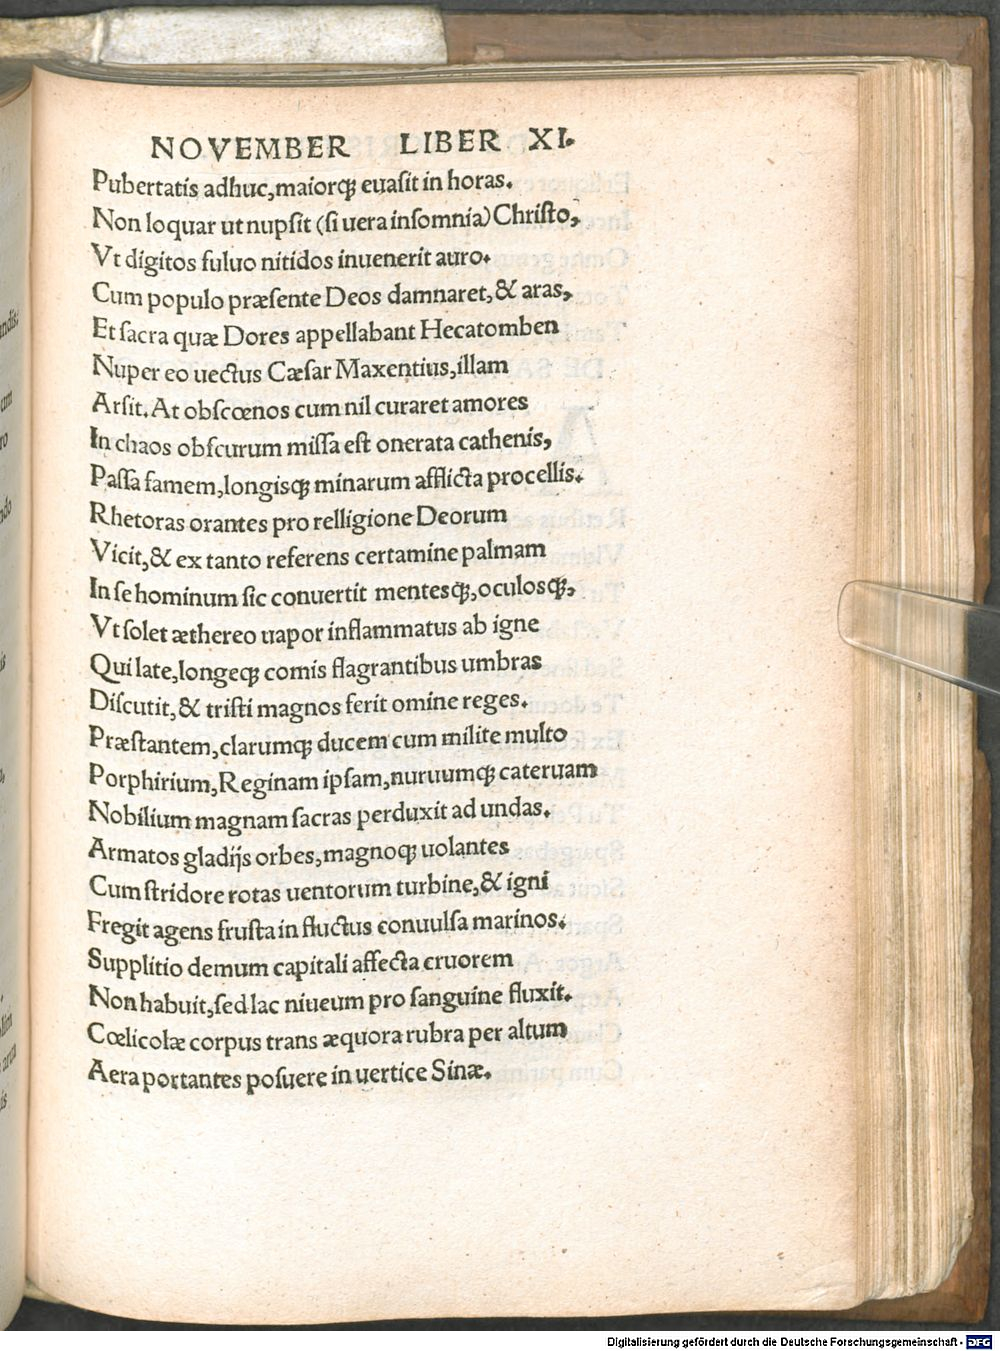 NOVEMBER LIBER XI.
Pubertatis adhuc, maiorq; euasit in horas.
Non loquar ut nupsit (si uera insomnia) Christo,
Vt digitos fuluo nitidos inuenerit auro.
Cum populo præsente Deos damnaret, & aras,
Et sacra quæ Dores appellabant Hecatomben
Nuper eo uectus Cæsar Maxentius, illam
Arsit. At obscœnos cum nil curaret amores
In chaos obscurum missa est onerata cathenis,
Passa famem, longisq; minarum afflicta procellis.
Rhetoras orantes pro relligione Deorum
Vicit, & ex tanto referens certamine palmam
In se hominum sic conuertit mentesq;, oculosq;,
Vt solet æthereo uapor inflammatus ab igne
Qui late, longeq; comis flagrantibus umbras
Discutit, & tristi magnos ferit omine reges.
Præstantem, clarumq; ducem cum milite multo
Porphirium, Reginam ipsam, nuruumq; cateruam
Nobilium magnam sacras perduxit ad undas.
Armatos gladijs orbes, magnoq; uolantes
Cum stridore rotas uentorum turbine, & igni
Fregit agens frusta in fluctus conuulsa marinos.
Supplitio demum capitali affecta cruorem
Non habuit, sed lac niueum pro sanguine fluxit.
Cœlicolæ corpus trans æquora rubra per altum
Aera portantes posuere in uertice Sinæ.
Digitalisierung gefördert durch die Deutsche Forschungsgemeinschaft - DFG